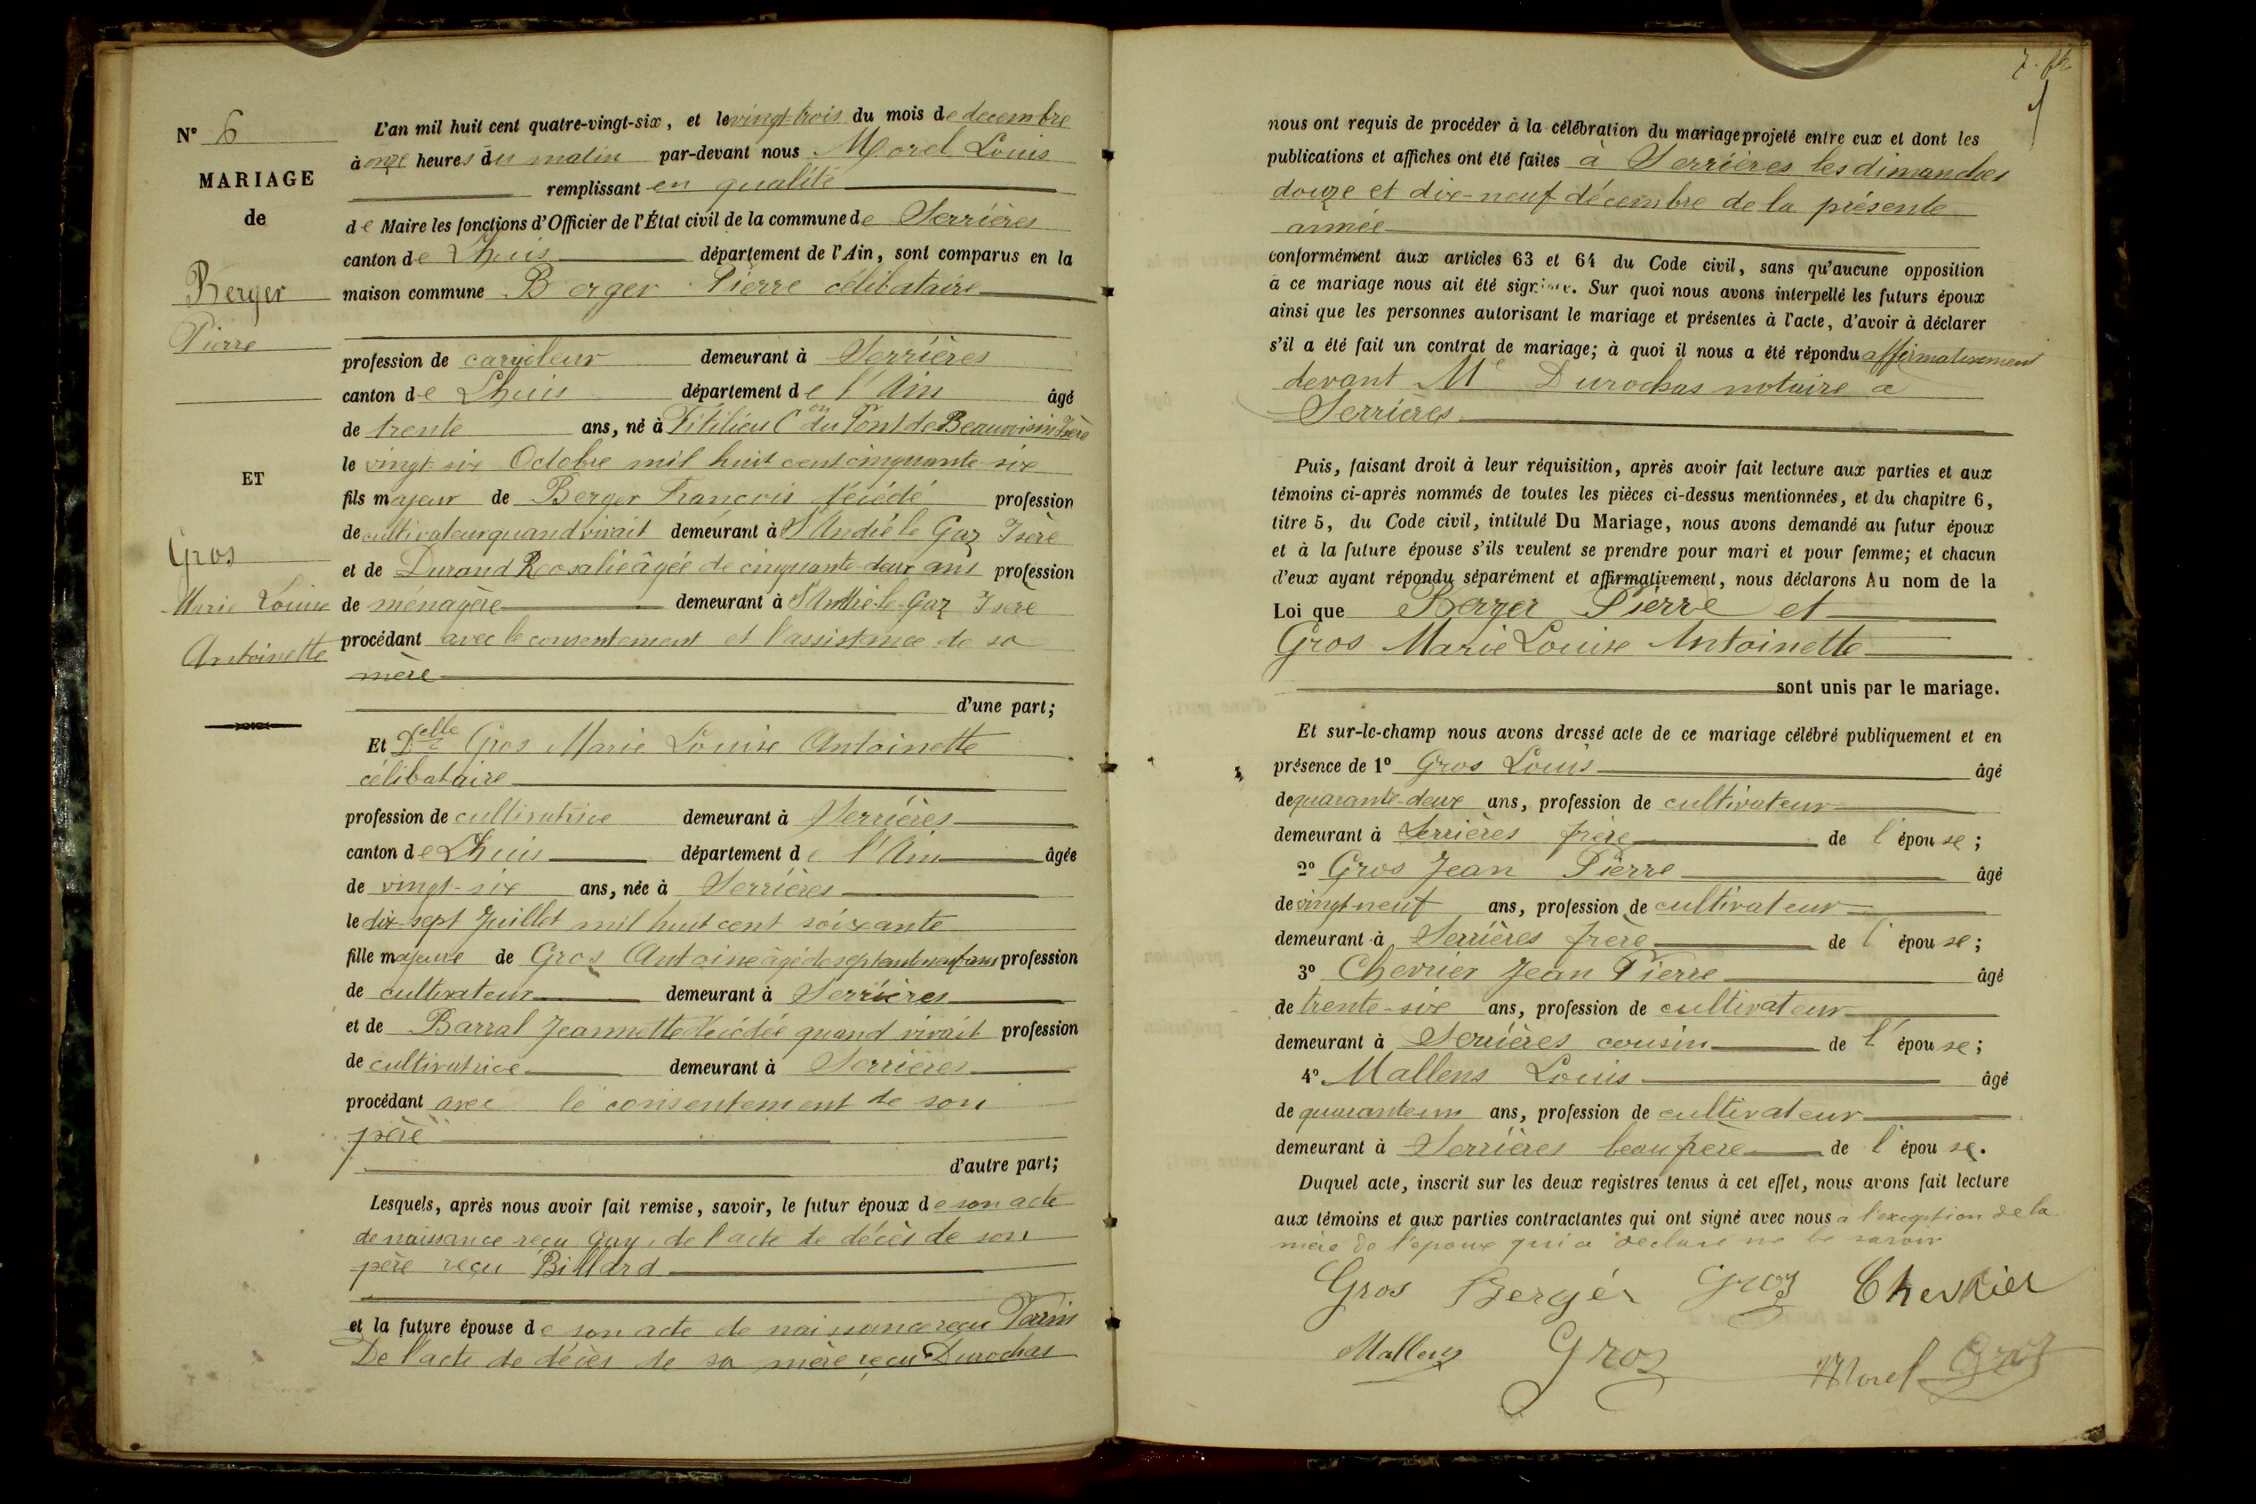 N° 6
MARIAGE
de
Berger
Pierre
ET
Gros
Marie Louise
Antoinette
L'an mil huit cent quatre-vingt-six, et le vingt-trois du mois de decembre
à onze heures du matin par-devant nous Morel Louis
remplissant en qualité
de Maire les fonctions d'Officier de l'État civil de la commune de Serrières
canton de Lhuis département de l'Ain, sont comparus en la
maison commune Berger Pierre célibataire
profession de demeurant à Serrières
canton de Lhuis département de l'Ain âgé
de trente ans, né à Pitilieu Con du Pont de Beauvoisin Isère
le vingt-six Octobre mil huit cent cinquante-six
fils majeur de Berger Francois décédé profession
de cultivateur quand vivait demeurant à St André le Gaz Isère
et de Durand Rosalie âgée de cinquante-deux ans profession
de ménagère demeurant à St André-le-Gaz Isère
procédant avec le consentement et l'assistance de sa
mère
d'une part;
Et Delle Gros Marie Louise Antoinette
célibataire
profession de cultivatrice demeurant à Serrières
canton de Lhuis département de l'Ain âgée
de vingt-six ans, née à Serrières
le dix-sept Juillet mil huit cent soixante
fille majeure de Gros Antoine âgé de septante neuf ans profession
de cultivateur demeurant à Serrières
et de Barral Jeannette décédée quand vivait profession
de cultivatrice demeurant à Serrières
procédant avec le consentement de son
père
d'autre part;
Lesquels, après nous avoir fait remise, savoir, le futur époux de son acte
de naissance reçu Guy, de l'acte de décès de son
père reçu Billard
et la future épouse de son acte de naissance reçu
De l'acte de décès de sa mère reçu Durochas
nous ont requis de procéder à la célébration du mariage projeté entre eux et dont les
publications et affiches ont été faites à Serrières les dimanches
douze et dix-neuf décembre de la présente
année
conformément aux articles 63 et 64 du Code civil, sans qu'aucune opposition
à ce mariage nous ait été signifiée. Sur quoi nous avons interpellé les futurs époux
ainsi que les personnes autorisant le mariage et présentes à l'acte, d'avoir à déclarer
s'il a été fait un contrat de mariage; à quoi il nous a été répondu affirmativement
devant Me Durochas notaire a
Serrières
Puis, faisant droit à leur réquisition, après avoir fait lecture aux parties et aux
témoins ci-après nommés de toutes les pièces ci-dessus mentionnées, et du chapitre 6,
titre 5, du Code civil, intitulé Du Mariage, nous avons demandé au futur époux
et à la future épouse s'ils veulent se prendre pour mari et pour femme; et chacun
d'eux ayant répondu séparément et affirmativement, nous déclarons Au nom de la
Loi que Berger Pierre et
Gros Marie Louise Antoinette
sont unis par le mariage.
Et sur-le-champ nous avons dressé acte de ce mariage célébré publiquement et en
présence de 1° Gros Louis âgé
de quarante-deux ans, profession de cultivateur
demeurant à Serrières frère de l'épouse;
2° Gros Jean Pierre âgé
de vingt-neuf ans, profession de cultivateur
demeurant à Serrières frère de l'épouse;
3° Chevrier Jean Pierre âgé
de trente-six ans, profession de cultivateur
demeurant à Serrières cousin de l'épouse;
4° Mallens Louis âgé
de quarante-un ans, profession de cultivateur
demeurant à Serrières beau frère de l'épouse.
Duquel acte, inscrit sur les deux registres tenus à cet effet, nous avons fait lecture
aux témoins et aux parties contractantes qui ont signé avec nous a l'exception de la
mère de l'epoux qui a declaré ne le savoir
Gros Berger Gros Chevrier
Mallens Gros Morel Gros